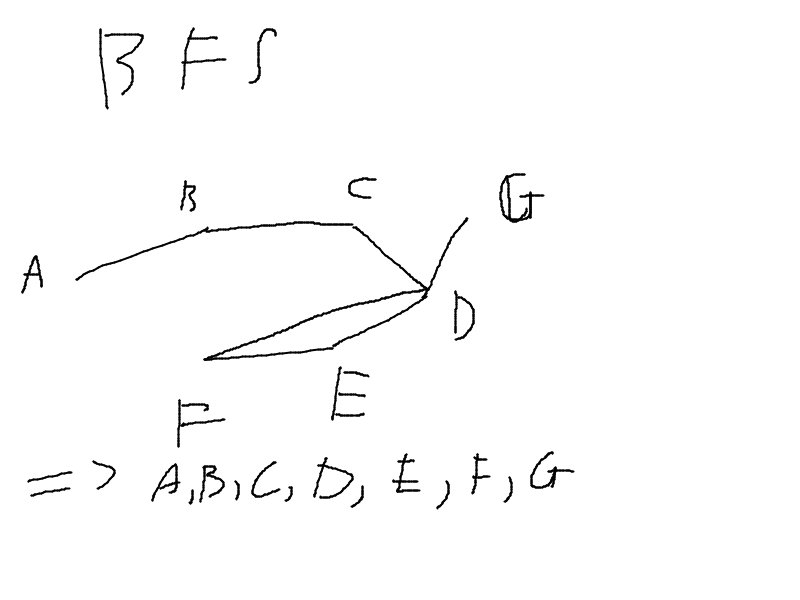 BFS
B C G
A
D
F E
=> A, B, C, D, E, F, G